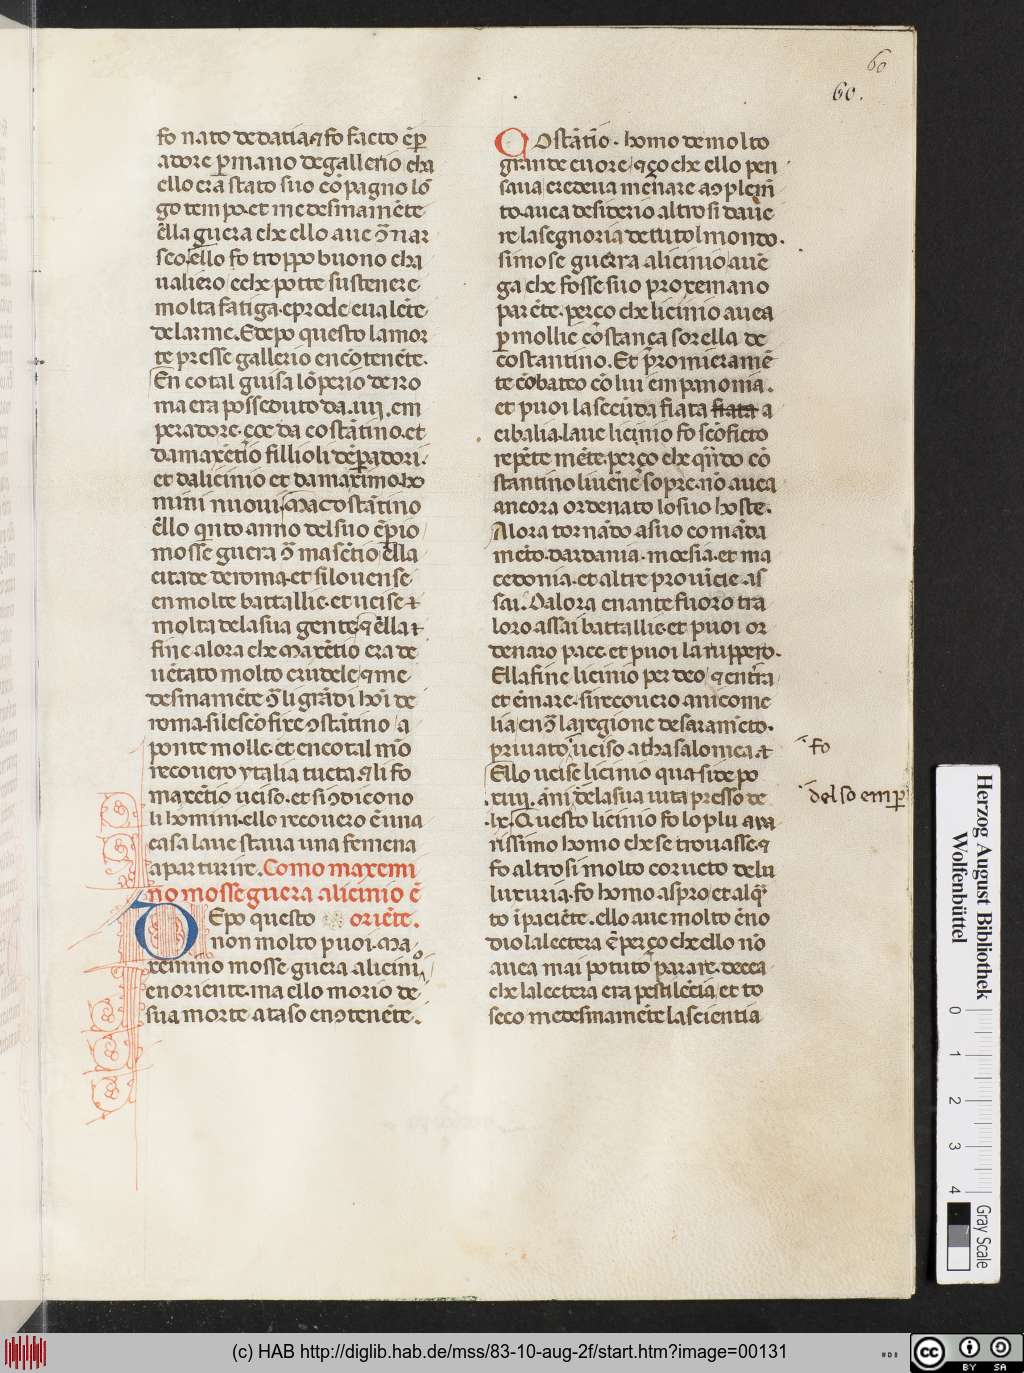 60
60.
fo nato de datia ⁊ fo facto ēp
adore p̱ mano de gallerio cha
ello era stato suo cōpagno lō
go tempo. et medesmamēte
ēlla guera che ello ave ɔ̄ nar
seo. ello fo troppo buono cha
ualiero e che potte sustenere
molta fatiga. e prode e ualēte
de larme. E depo questo la mor
te presse gallerio en cōtenēte.
En cotal guisa lōperio de ro
ma era posseduto da .iiij. em
peradore. cce da costātino. et
da maxētio fillioli dēp̱adori.
et da licinio et da maximo. ho
mini nuoui. Ma costātino
ēllo qnto anno del suo ēpio
mosse guera ɔ̄ masētio ēlla
citade de roma. et si lo uense
en molte battallie. et ucise ⁊
molta de la sua gente. ⁊ ēlla ⁊
fine. alora che maxētio era de
uētato molto crudele. ⁊ me
desmamēte ɔ̄ li grādi hoī de
roma. si le scōfire ɔstātino a
ponte molle. et en cotal mō
recouero ytalia tucta. ⁊ li fo
maxētio uciso. et si ɔ dicono
li homini. ello recouero ē una
casa laue staua una femena
a parturire. Como maxemi
no mosse guera a licinio ē
Depo questo oriēte.
non molto puoi. Ma
xemino mosse guera a licinio
en oriente. ma ello morio de
sua morte a taso en ɔtenēte.
Costātio. homo de molto
grande cuore. ⁊ ço che ello pen
saua credeua menare a ɔplem̄
to. auea desiderio altrosi d auē
re la segnoria de tuto l mondo.
si mose guerra a licinio auē
ga che fosse suo proxemano
parēte. perço che licinio auea
p̱ mollie cōstança sorella de
costantino. Et p̄romieramē
te cōbateo cō lui em panonia.
et puoi la secūda fiata fiata a
cibalia. laue licinio fo scōficto
repēte mēte. perço che qn̄do cō
stantino li uēne sopre. nō auea
ancora ordenato lo suo hoste.
Alora tornādo a suo comāda
mēto. dardania. moesia. et ma
cedonia. et altre prouīcie as
sai. Dalora enante fuoro tra
loro assai battallie. et puoi or
denaro pace. et puoi la ruppero.
Ella fine licinio per deo. ⁊ en tr̄ra
et ē mare. si recouero a nicome
lia en ɔ̄ la regione de saramēto.
priuato uciso a thasalonica. ⁊
fo
Ello ucise licinio qua si depo
.xiiij. āni de la sua uita presso de
del so emp̱
.lx. Questo licinio fo lo plu aua
rissimo homo che se trouasse. ⁊
fo altrosi molto coructo de lu
luxuria. fo homo aspro et alq̄
to īpaciēte. ello aue molto ēno
dio la lectera ē perço che ello nō
auea mai potuto parare. decea
che la lectera era pestilēcia. et to
seco medesmamēte la scientia
Herzog August Bibliothek
Wolfenbüttel
0 1 2 3 4
Gray Scale
(c) HAB http://diglib.hab.de/mss/83-10-aug-2f/start.htm?image=00131
cc BY SA